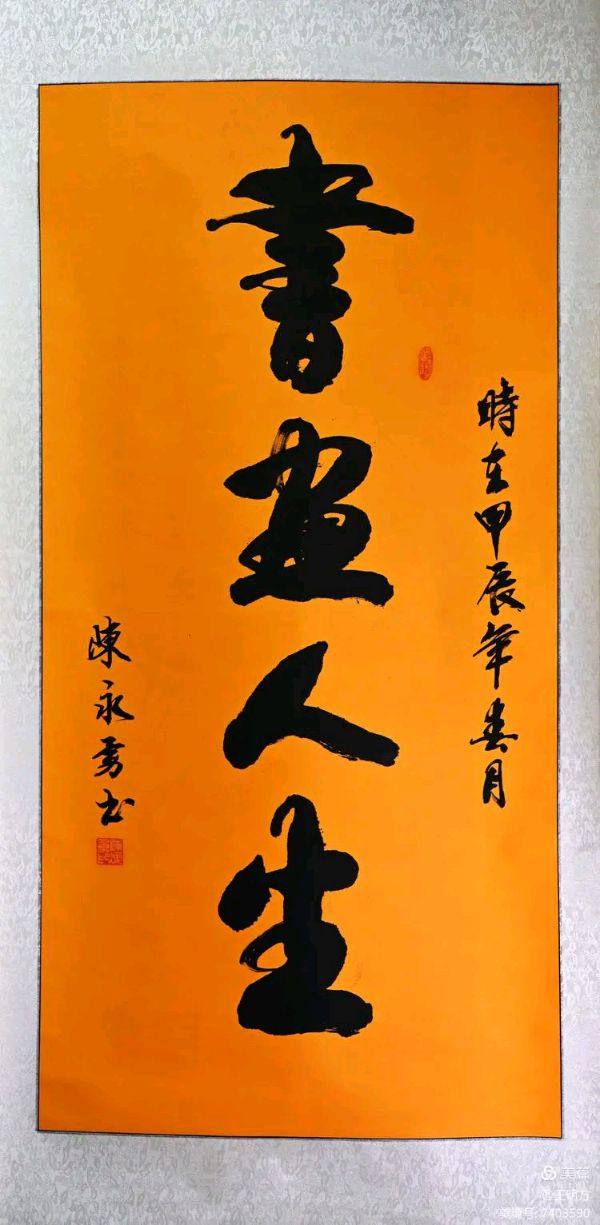 時在甲辰年春月
書畫人生
陳永书
美篇
美篇号: 7403590